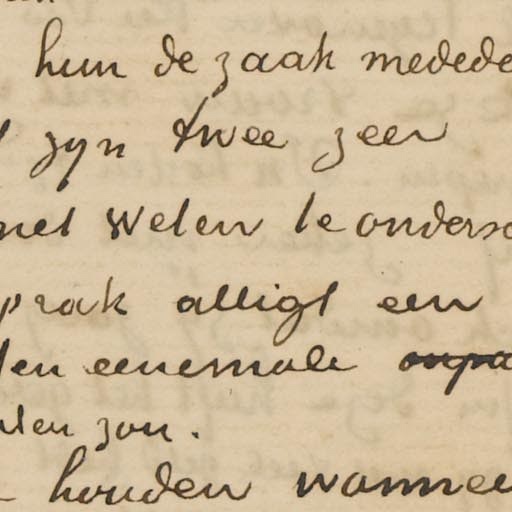 hun de zaak medede
zyn twee zeer
net weten te onders
prak alligt een
ten eenemale
uten zou.
houden wannee